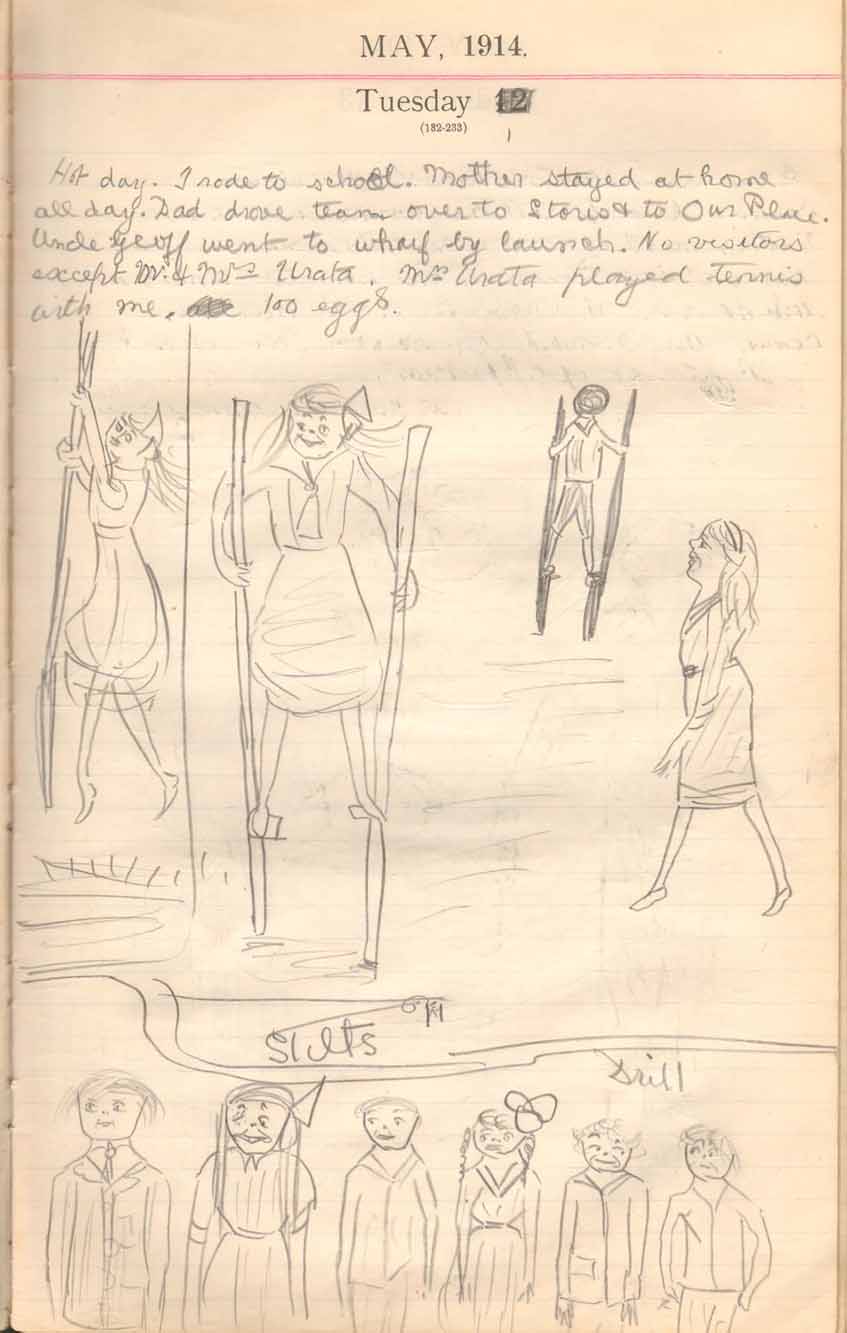 MAY, 1914.
Tuesday 12
(132-233)
Hot day. I rode to school. Mother stayed at home
all day. Dad drove team over to Store & to Our Place.
Uncle Geoff went to wharf by launch. No visitors
except Mr. & Mrs Urata. Mrs Urata played tennis
with me. 100 eggs.
Stilts
Drill